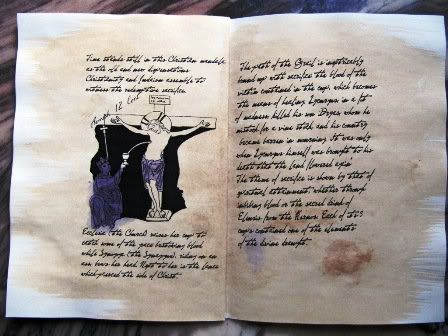 Time stands still in this Christian mandala
as the old and new dispensations
Christianity and Judaism assemble to
witness the redemptive sacrifice.
12
Ecclesia (the Church) raises her cup to
catch some of the grace bestowing blood
while Synagoga (the Synagogue), riding on an
ass bows her head. Next to her is the lance
which pierced the side of Christ.
The path of the Grail is inextricably
bound up with sacrifice the blood of the
victim contained in the cup, which becomes
the means of healing. Lycurgus in a fit
of madness killed his son Dryas, whom he
mistook for a vine stock, and his country
became barren in mourning. It was only
when Lycurgus himself was brought to his
death that the land flowered again
The theme of sacrifice is shown by that of
gradual attainment, whether through
imbibing blood or the sacred drink of
Eleusis from the Kernos. Each of its
cups contained one of the elements
of the divine draught.